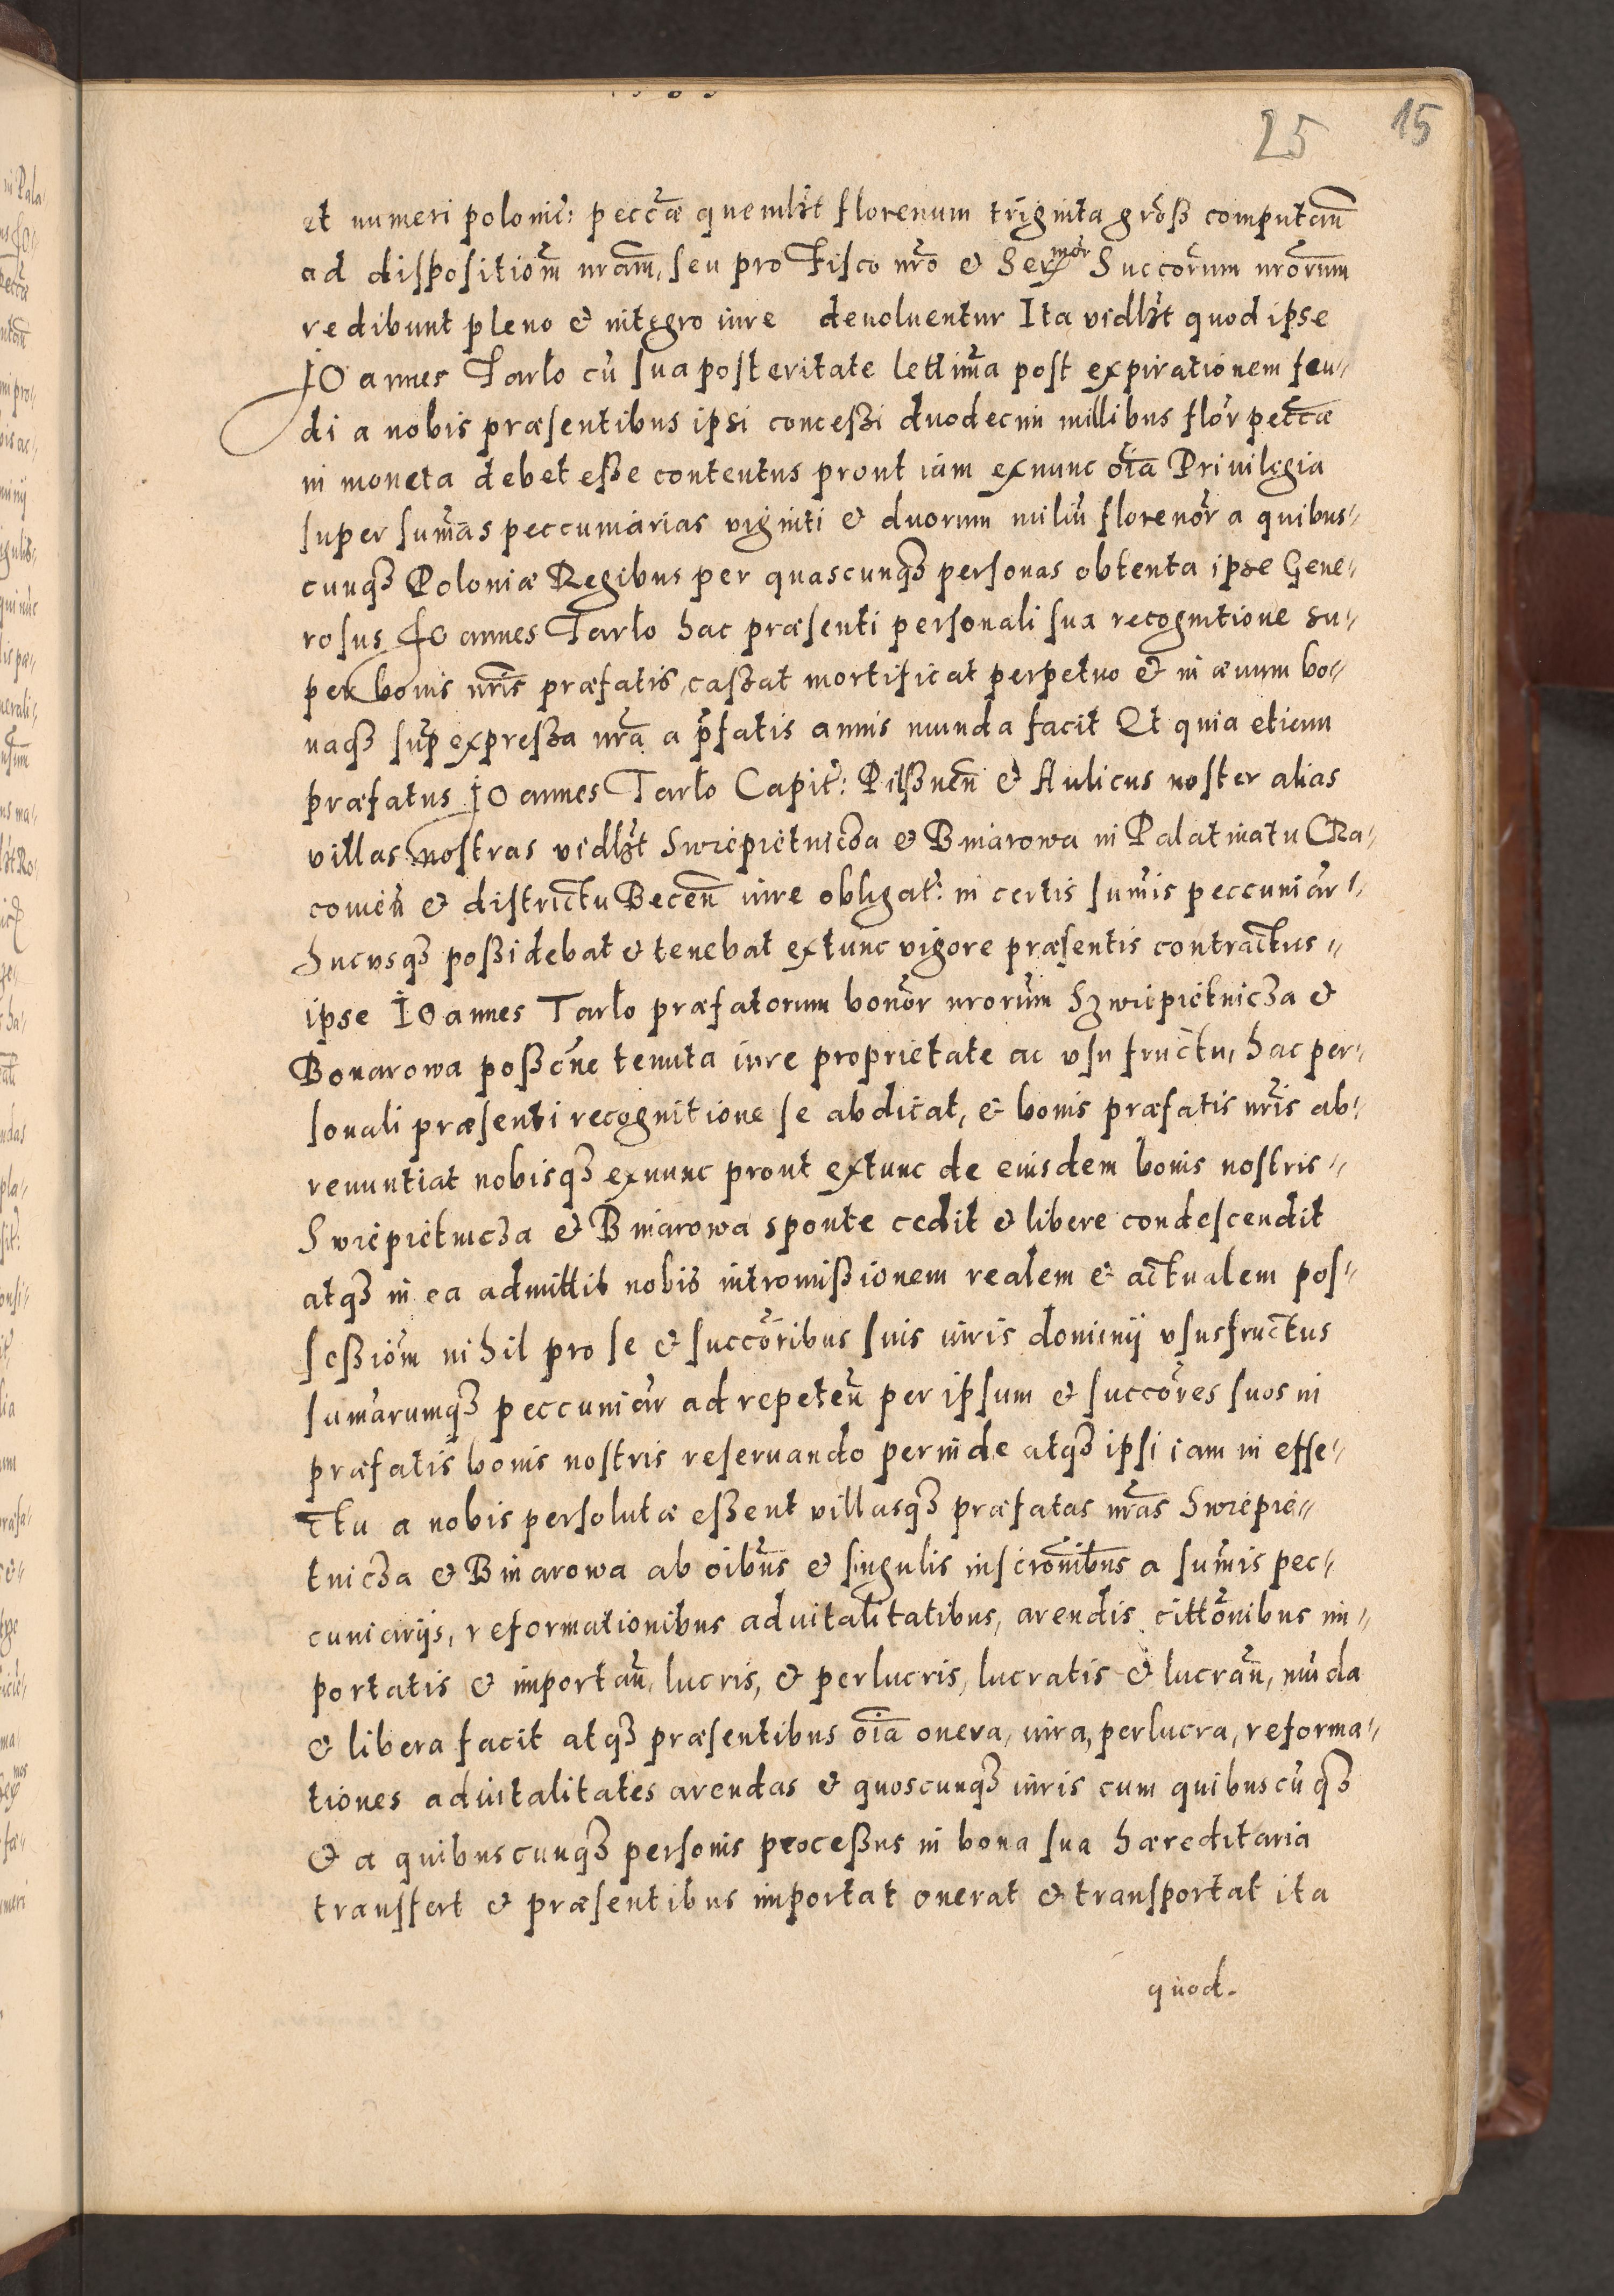 25 15
et numeri polonic: peccæ quemlꝫt florenum triginta gröss computan̄
ad dispositiom̄ nram̄, seu pro Fisco nr̄o & Serᵐᵒʳ Succorum nrorum
redibunt pleno & integro iure deuoluentur Ita vidlꝫt quod ipse
IOannes Tarlo cū sua posteritate lettima post expirationem feu⸗
di a nobis præsentibus ipsi concessi duodecim millibus flor̄ peccæ
in moneta debet esse contentus prout iam exnunc oīa Priuilegia
super sum̄as peccuniarias viginti & duorum miliū florenor̄ a quibus⸗
cunqꝫ Poloniæ Regibus per quascunqꝫ personas obtenta ipse Gene⸗
rosus IOannes Tarlo hac præsenti personali sua recognitione su⸗
per bonis nr̄is præfatis, cassat mortificat perpetuo & in æuum bo⸗
naqꝫ sup̄ expressa nr̄a a p̄fatis annis munda facit Et quia etiam
præfatus IOannes Tarlo Capit: Pilsnen̄ & Aulicus noster alias
villas nostras vidlꝫt Swiepietnicza & Biniarowa in Palatinatu CRa⸗
couien̄ & districtu Becen̄ iure obligat: in certis sum̄is peccuniar̄⸗
hucusqꝫ possidebat & tenebat extunc vigore præsentis contractus⸗
ipse IOannes Tarlo præfatorum bonor̄ nrorum Szwiepietnicza &
Bonarowa possōne tenuta iure proprietate ac vsu fructu, hac per⸗
sonali præsenti recognitione se abdicat, & bonis præfatis nr̄is ab⸗
renuntiat nobisqꝫ exnunc prout extunc de eiusdem bonis nostris⸗
Swiepietnicza & Biniarowa sponte cedit & libere condescendit
atqꝫ in ea admittit nobis intromissionem realem & actualem pos⸗
sessiom̄ nihil pro se & succoribus suis iuris dominij vsusfructus
sum̄arumqꝫ peccuniar̄ ad repeten̄ per ipsum & succores suos in
præfatis bonis nostris reseruando perinde atqꝫ ipsi iam in effe⸗
ctu a nobis persolutæ essent villasqꝫ præfatas nr̄as Swiepie⸗
tnicza & Binarowa ab oibus & singulis inscronibus a sum̄is pec⸗
cuniarijs, reformationibus aduitalitatibus, arendis cittōnibus im⸗
portatis & importan̄, lucris, & perlucris, lucratis & lucran̄, mūda
& libera facit atqꝫ præsentibus oīa onera, iura, perlucra, reforma⸗
tiones aduitalitates arendas & quoscunqꝫ iuris cum quibuscūqꝫ
& a quibuscunqꝫ personis processus in bona sua hæreditaria
transfert & præsentibus importat onerat & transportat ita
quod.